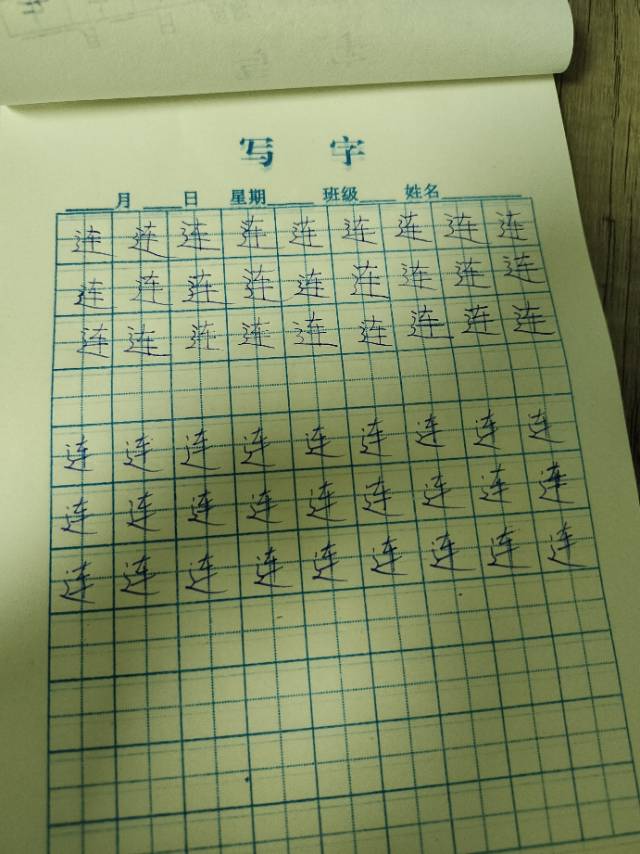 写 字
月 日 星期 班级 姓名
连 连 连 连 连 连 连 连 连
连 连 连 连 连 连 连 连 连
连 连 连 连 连 连 连 连 连
连 连 连 连 连 连 连 连 连
连 连 连 连 连 连 连 连 连
连 连 连 连 连 连 连 连 连